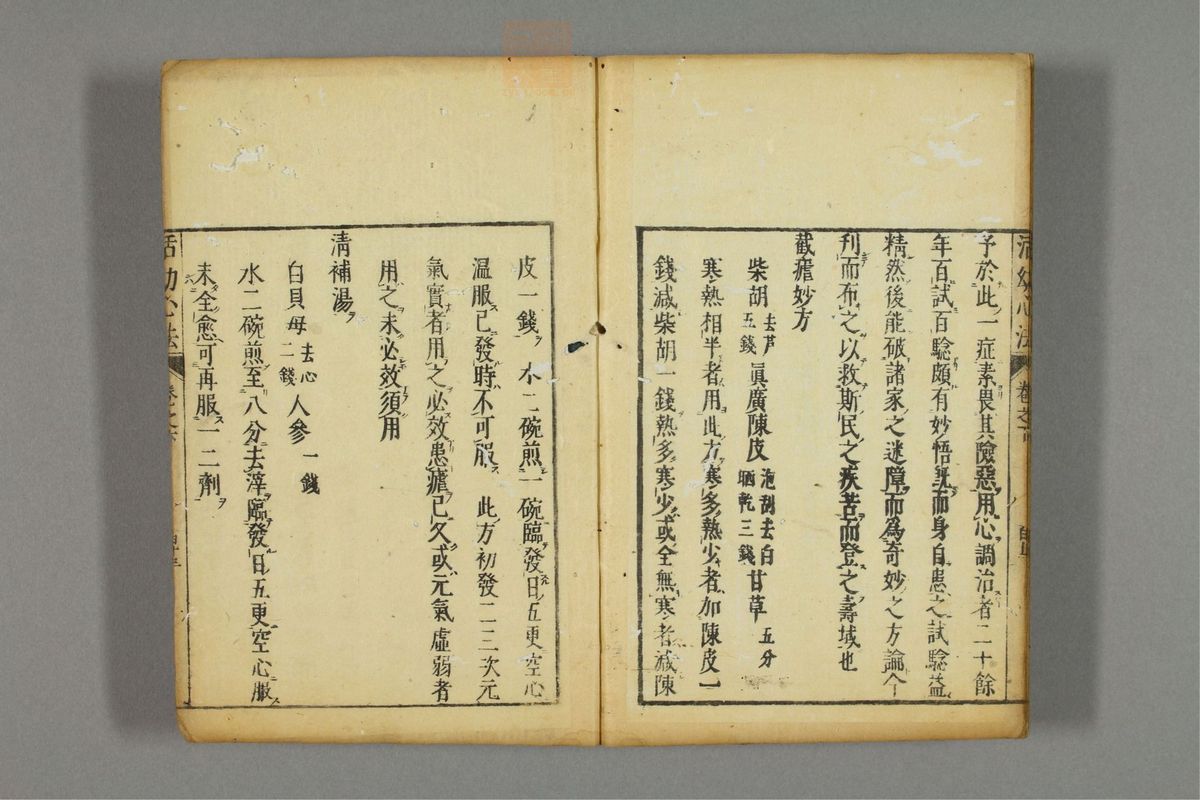 活幼心法 卷之
予於此一症素畏其險惡用心調治者二十餘
年百試百驗頗有妙悟旣而身自患之試驗益
精然後能破諸家之迷障而為奇妙之方論今
刊而布之以救斯民之疾苦而登之壽域也
截瘧妙方
柴胡去芦五錢 眞廣陳皮泡刮去白晒乾三錢 甘草五分
寒熱相半者用此方寒多熱少者加陳皮一
錢減柴胡一錢熱多寒少或全無寒者減陳
皮一錢 水二碗煎一碗臨發日五更空心
温服已發時不可服 此方初發二三次元
氣實者用之必效患瘧已久或元氣虛弱者
用之未必效須用
清補湯
白貝母去心二錢 人參一錢
水二碗煎至八分去滓臨發日五更空心服
未全愈可再服一二劑
活幼心法 卷之